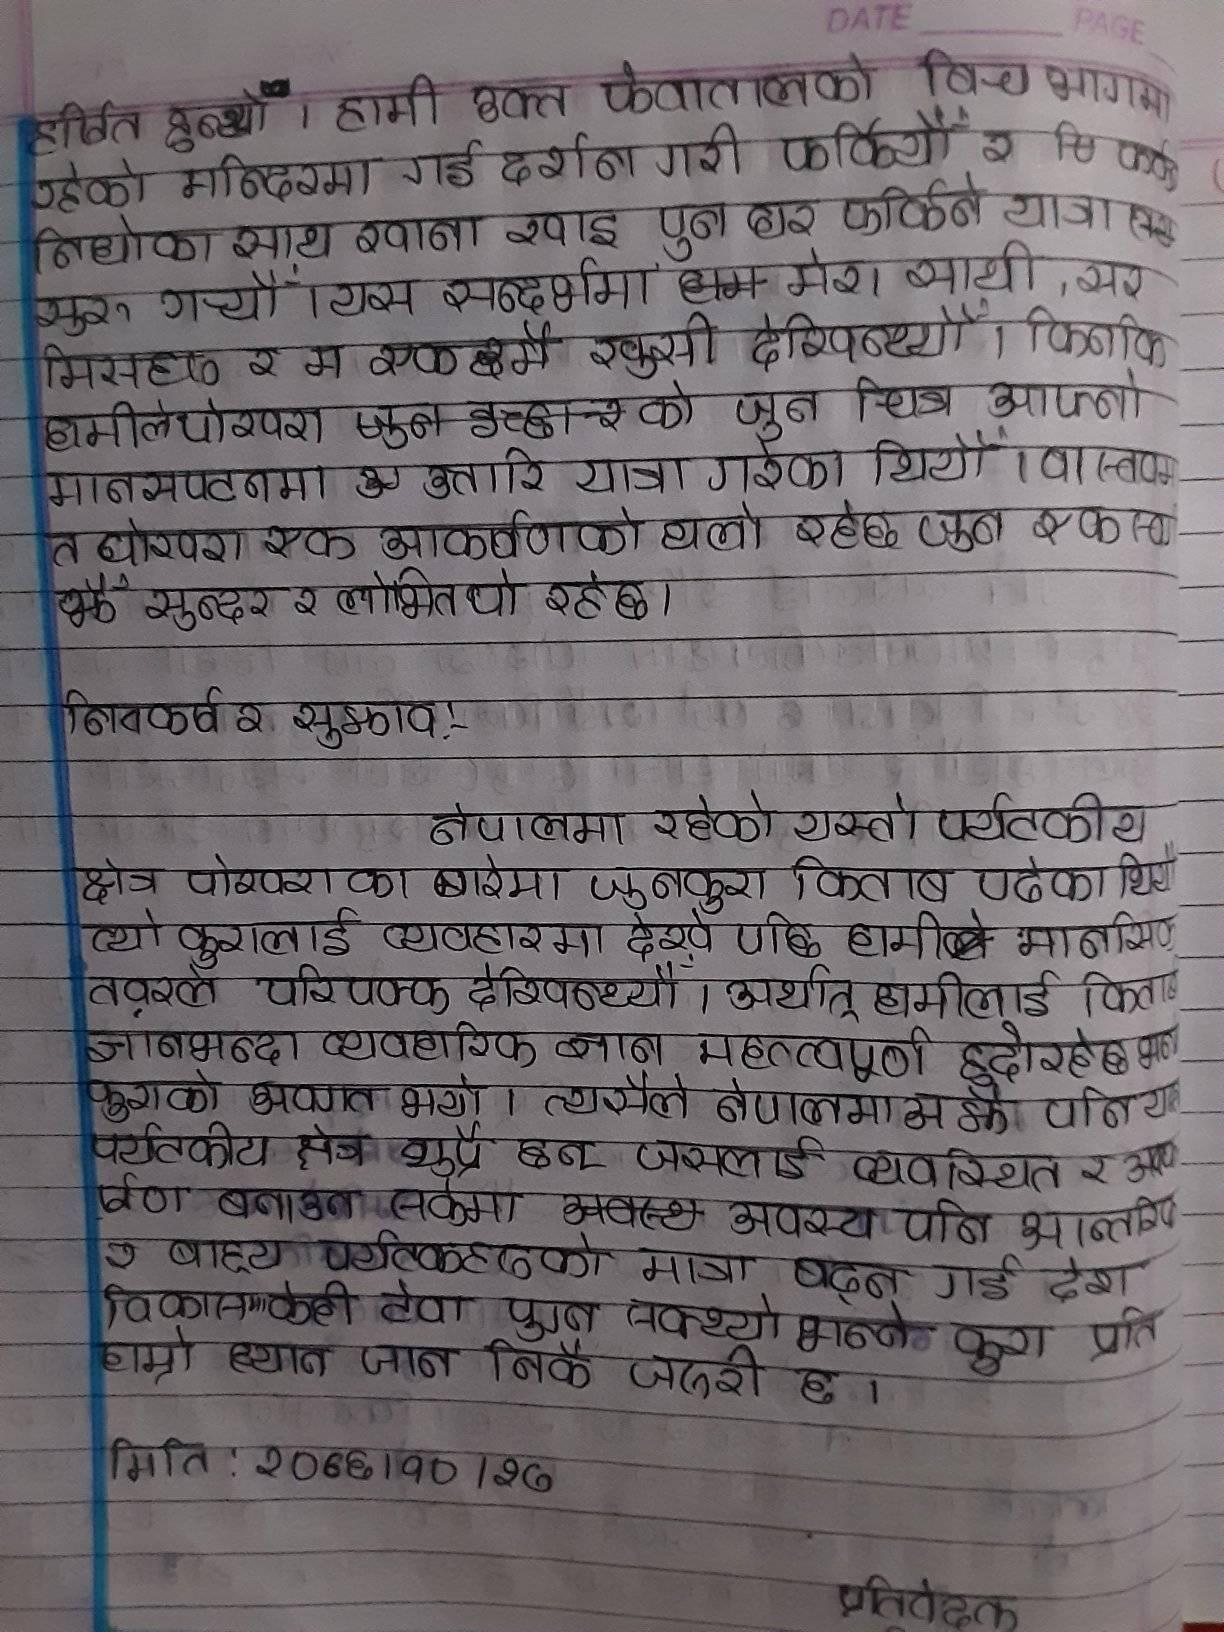 DATE PAGE
हर्षित हुन्थ्यौं । हामी उक्त फेवातालको बिच भागमा
रहेको मन्दिरमा गई दर्शन गरी फर्कियौं र
साथ खाना खाइ पुन घर फर्किने यात्रा
सुरु गर्यौं । यस सन्दर्भमा मेरा साथी, सर
मिसहरु र म एकदमै खुसी देखिन्थ्यौं । किनकि
हामीले पोखरा को जुन चित्र आफ्नो
मानसपटनमा उतारि यात्रा गरेका थियौं । वास्तवम
त पोखरा एक आकर्षणको थलो रहेछ जुन एक
झैं सुन्दर र लोभितयो रहेछ।
निषकर्ष र सुझाव:-
नेपालमा रहेको यस्तो पर्यटकीय
क्षेत्र पोखराका बारेमा जुनकुरा किताब पढेका थियौ
त्यो कुरालाई व्यवहारमा देखे पछि हामी मानसिक
तवरले परिपक्क देखिन्थ्यौं । अर्थात् हामीलाई किताब
ज्ञानभन्दा व्यवहारिक ज्ञान महत्वपूर्ण हुदोरहेछ भन्ने
कुराको अवगत भयो । त्यसैले नेपालमा अझै पनि
पर्यटकीय क्षेत्र थुप्रै छन् जसलाई व्यवस्थित र आक
र्षण बनाउन सकेमा अवश्य पनि आन्तरिक
र बाह्य पर्यटकहरुको मात्रा बढ्न गई देश
विकासमा केही टेवा पुग्न सक्थ्यो भन्ने कुरा प्रति
हाम्रो ध्यान जान निकै जरुरी छ ।
मिति : २०७६।१०।२७
प्रतिवेदक